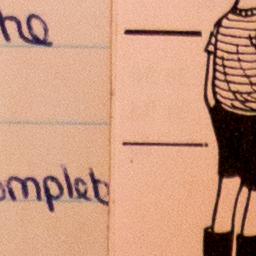 he
omplet